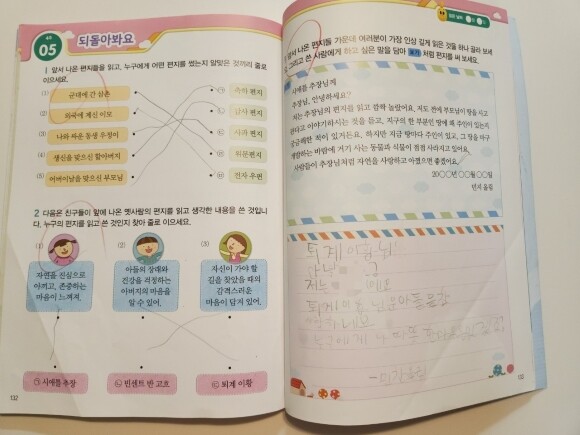 05 되돌아봐요
1 앞서 나온 편지들을 읽고, 누구에게 어떤 편지를 썼는지 알맞은 것끼리 줄로
이으세요.
(1) 군대에 간 삼촌
(2) 외국에 계신 이모
(3) 나와 싸운 동생 우정이
(4) 생신을 맞으신 할아버지
(5) 어버이날을 맞으신 부모님
㉠ 축하 편지
㉡ 감사 편지
㉢ 사과 편지
㉣ 위문편지
㉤ 전자 우편
2 다음은 친구들이 앞에 나온 옛사람의 편지를 읽고 생각한 내용을 쓴 것입니
다. 누구의 편지를 읽고 쓴 것인지 찾아 줄로 이으세요.
(1) (2) (3)
자연을 진심으로
아끼고, 존중하는
마음이 느껴져.
아들의 상태와
건강을 걱정하는
아버지의 마음을
알 수 있어.
자신이 가야 할
길을 찾았을 때의
감격스러운
마음이 담겨 있어.
㉠ 시애틀 추장
㉡ 빈센트 반 고흐
㉢ 퇴계 이황
132
앞서 나온 편지들 가운데 여러분이 가장 인상 깊게 읽은 것을 하나 골라 보세
요. 그리고 쓴 사람에게 하고 싶은 말을 담아 보기 처럼 편지를 써 보세요.
시애틀 추장님께
추장님, 안녕하세요?
저는 추장님의 편지를 읽고 깜짝 놀랐어요. 저도 전에 부모님이 땅을 사고
판다고 이야기하시는 것을 듣고, 지구의 한 부분인 땅에 왜 주인이 있는지
궁금해한 적이 있거든요. 하지만 지금 땅마다 주인이 있고, 그 땅을 마구
개발하는 바람에 거기 사는 동물과 식물이 점점 사라지고 있어요.
사람들이 추장님처럼 자연을 사랑하고 아꼈으면 좋겠어요.
20○○년 ○○월 ○○일
민지 올림
퇴계 이황 님
저는
퇴계 이황 님은 아들을